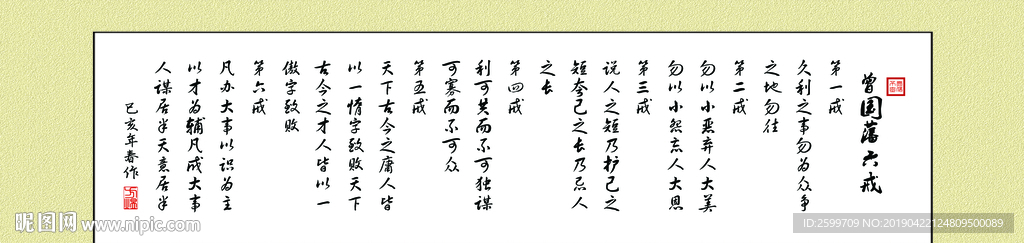 曾国藩六戒
第一戒
久利之事勿为众争
之地勿往
第二戒
勿以小恶弃人大美
勿以小怨忘人大恩
第三戒
说人之短乃护己之
短夸己之长乃忌人
之长
第四戒
利可共而不可独谋
可寡而不可众
第五戒
天下古今之庸人皆
以一惰字致败天下
古今之才人皆以一
傲字致败
第六戒
凡办大事以识为主
以才为辅凡成大事
人谋居半天意居半
己亥年春作
昵图网 www.nipic.com
ID:2599709 NO:20190422124809500089